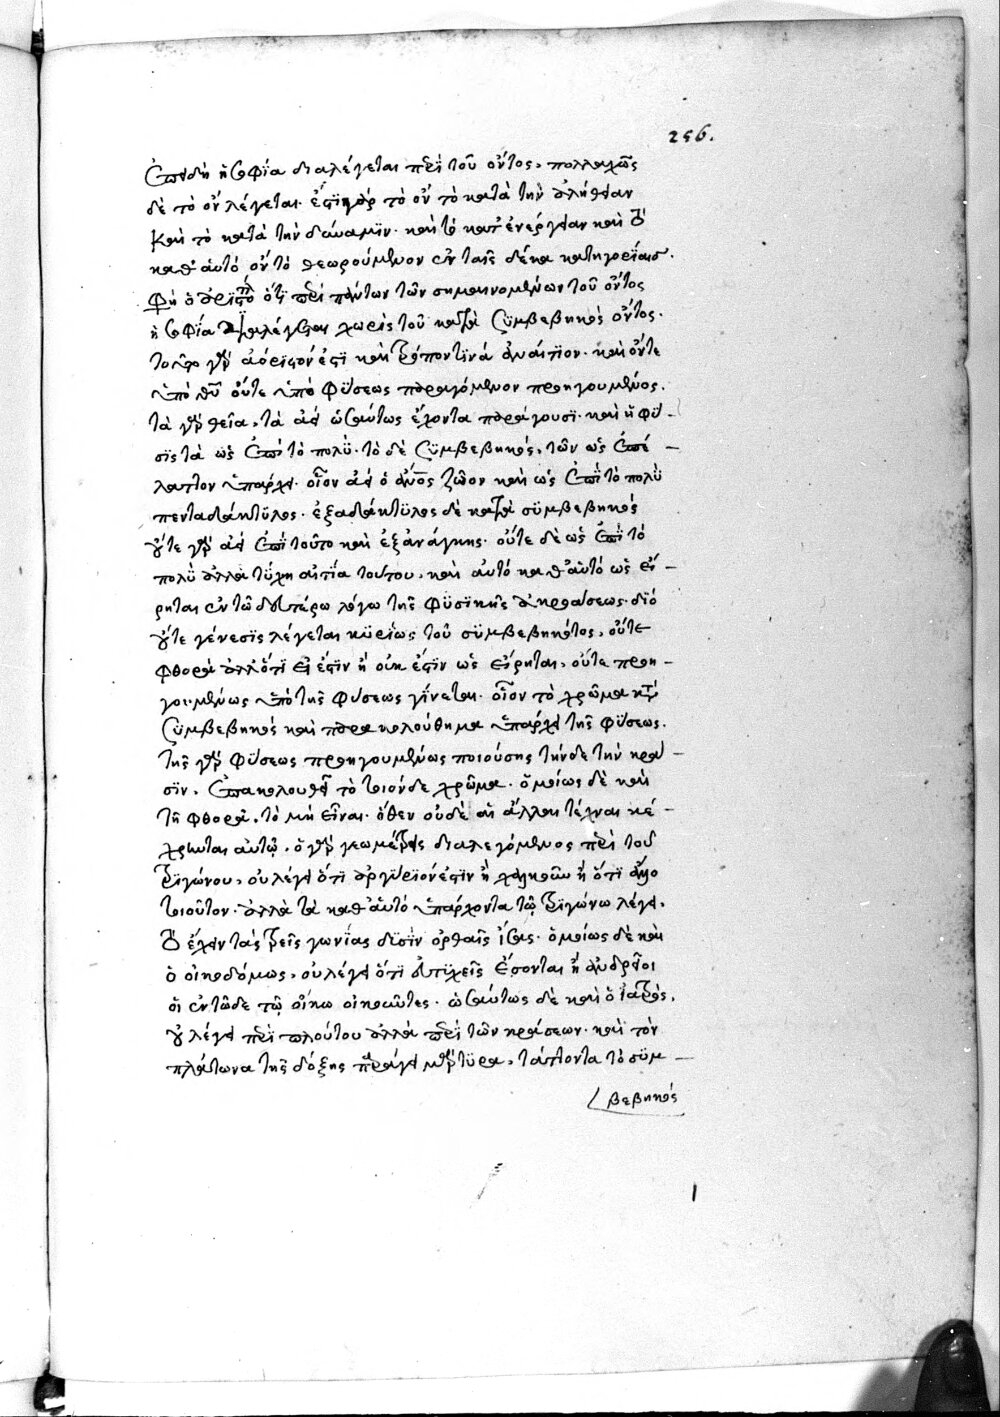 256.
Ἐπειδὴ ἡ σοφία διαλέγεται περὶ τοῦ ὄντος, πολλαχῶς
δὲ τὸ ὂν λέγεται· ἔστι γὰρ τὸ ὂν τὸ κατὰ τὴν ἀλήθειαν
καὶ τὸ κατὰ τὴν δύναμιν· καὶ τὸ κατ' ἐνέργειαν καὶ τὸ
καθ' αὑτό ὂν τὸ θεωρούμενον ἐν ταῖς δέκα κατηγορίαις.
φησὶ ὁ ὅτι περὶ πάντων τῶν σημαινομένων τοῦ ὄντος
ἡ σοφία διαλέγεται χωρὶς τοῦ κατὰ συμβεβηκὸς ὄντος·
τοῦτο γὰρ ἀόριστόν ἐστι καὶ τρόπον τινὰ ἀναίτιον· καὶ οὔτε
ὑπὸ θεοῦ οὔτε ὑπὸ φύσεως παραγόμενον προηγουμένως.
τὰ γὰρ θεῖα, τὰ ἀεὶ ὡσαύτως ἔχοντα παράγουσι· καὶ ἡ φύ-
σις τὰ ὡς ἐπὶ τὸ πολύ· τὸ δὲ συμβεβηκός, τῶν ὡς ἐπ' ἔ-
λαττον ὑπάρχει· οἷον ἀεὶ ὁ ἄνος ζῶον καὶ ὡς ἐπὶ τὸ πολὺ
πενταδάκτυλος· ἑξαδάκτυλος δὲ κατὰ συμβεβηκός
οὔτε γὰρ ἀεὶ ἐπὶ τοῦτο καὶ ἐξ ἀνάγκης· οὔτε δὲ ὡς ἐπὶ τὸ
πολὺ ἀλλὰ τύχη αἰτία τούτου· καὶ αὐτὸ καθ' αὑτό ὡς εἴ-
ρηται ἐν τῶ δευτέρω λόγω τῆς φυσικῆς ἀκροάσεως· διὸ
οὔτε γένεσις λέγεται κυρίως τοῦ συμβεβηκότος, οὔτε
φθορὰ ἀλλ' ὅτι εἰ ἔστιν ἢ οὐκ ἔστιν ὡς εἴρηται, οὔτε προη-
γουμένως ὑπὸ τῆς φύσεως γίνεται· οἷον τὸ χρῶμα κατὰ
συμβεβηκὸς καὶ παρακολούθημα ὑπάρχει τῆς φύσεως.
τῆς γὰρ φύσεως προηγουμένως ποιούσης τήνδε τὴν κρᾶ-
σιν, ἐπακολουθεῖ τὸ τοιόνδε χρῶμα· ὁμοίως δὲ καὶ
τῆ φθορᾶ, τὸ μὴ εἶναι· ὅθεν οὐδὲ αἱ ἄλλαι τέχναι κέ-
χρηνται αὐτῷ· ὁ γὰρ γεωμέτρης διαλεγόμενος περὶ τοῦ
τριγώνου, οὐ λέγει ὅτι ἀργύριόν ἐστιν ἢ χαλκοῦν ἢ ὅτι ἄλλο
τοιοῦτον· ἀλλὰ τὰ καθ' αὑτό ὑπάρχοντα τῷ τριγώνω λέγει.
τὸ ἔχειν τὰς τρεῖς γωνίας δυσὶν ὀρθαῖς ἴσας· ὁμοίως δὲ καὶ
ὁ οἰκοδόμος, οὐ λέγει ὅτι εὐτυχεῖς ἔσονται ἢ ἀνδρεῖοι
οἱ ἐν τῶδε τῷ οἴκω οἰκοῦντες· ὡσαύτως δὲ καὶ ὁ ἰατρός,
οὐ λέγει περὶ πλούτου ἀλλὰ περὶ τῶν κράσεων· καὶ τὸν
πλάτωνα τῆς δόξης παράγει μάρτυρα, τάττοντα τὸ συμ-
βεβηκὸς